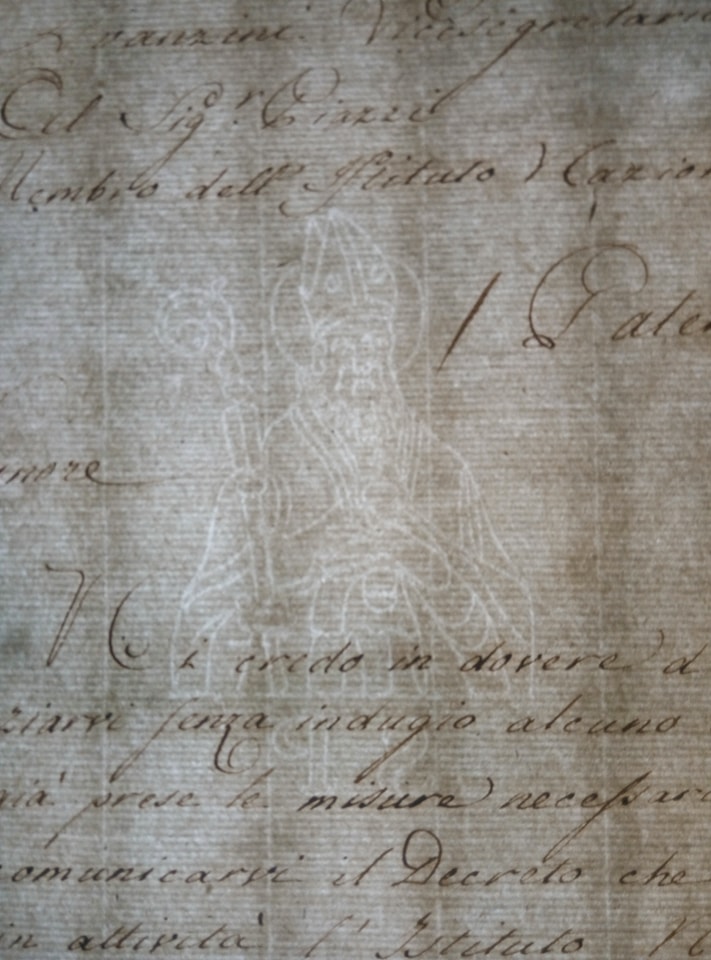 vanzini. Vicesegretario
Al Sig.r Piazzi
Membro dell' Istituto Nazion
/ Paler
nore
Mi credo in dovere d
ziarvi senza indugio alcuno
già prese le misure necessari
comunicarvi il Decreto che
in attività l' Istituto N